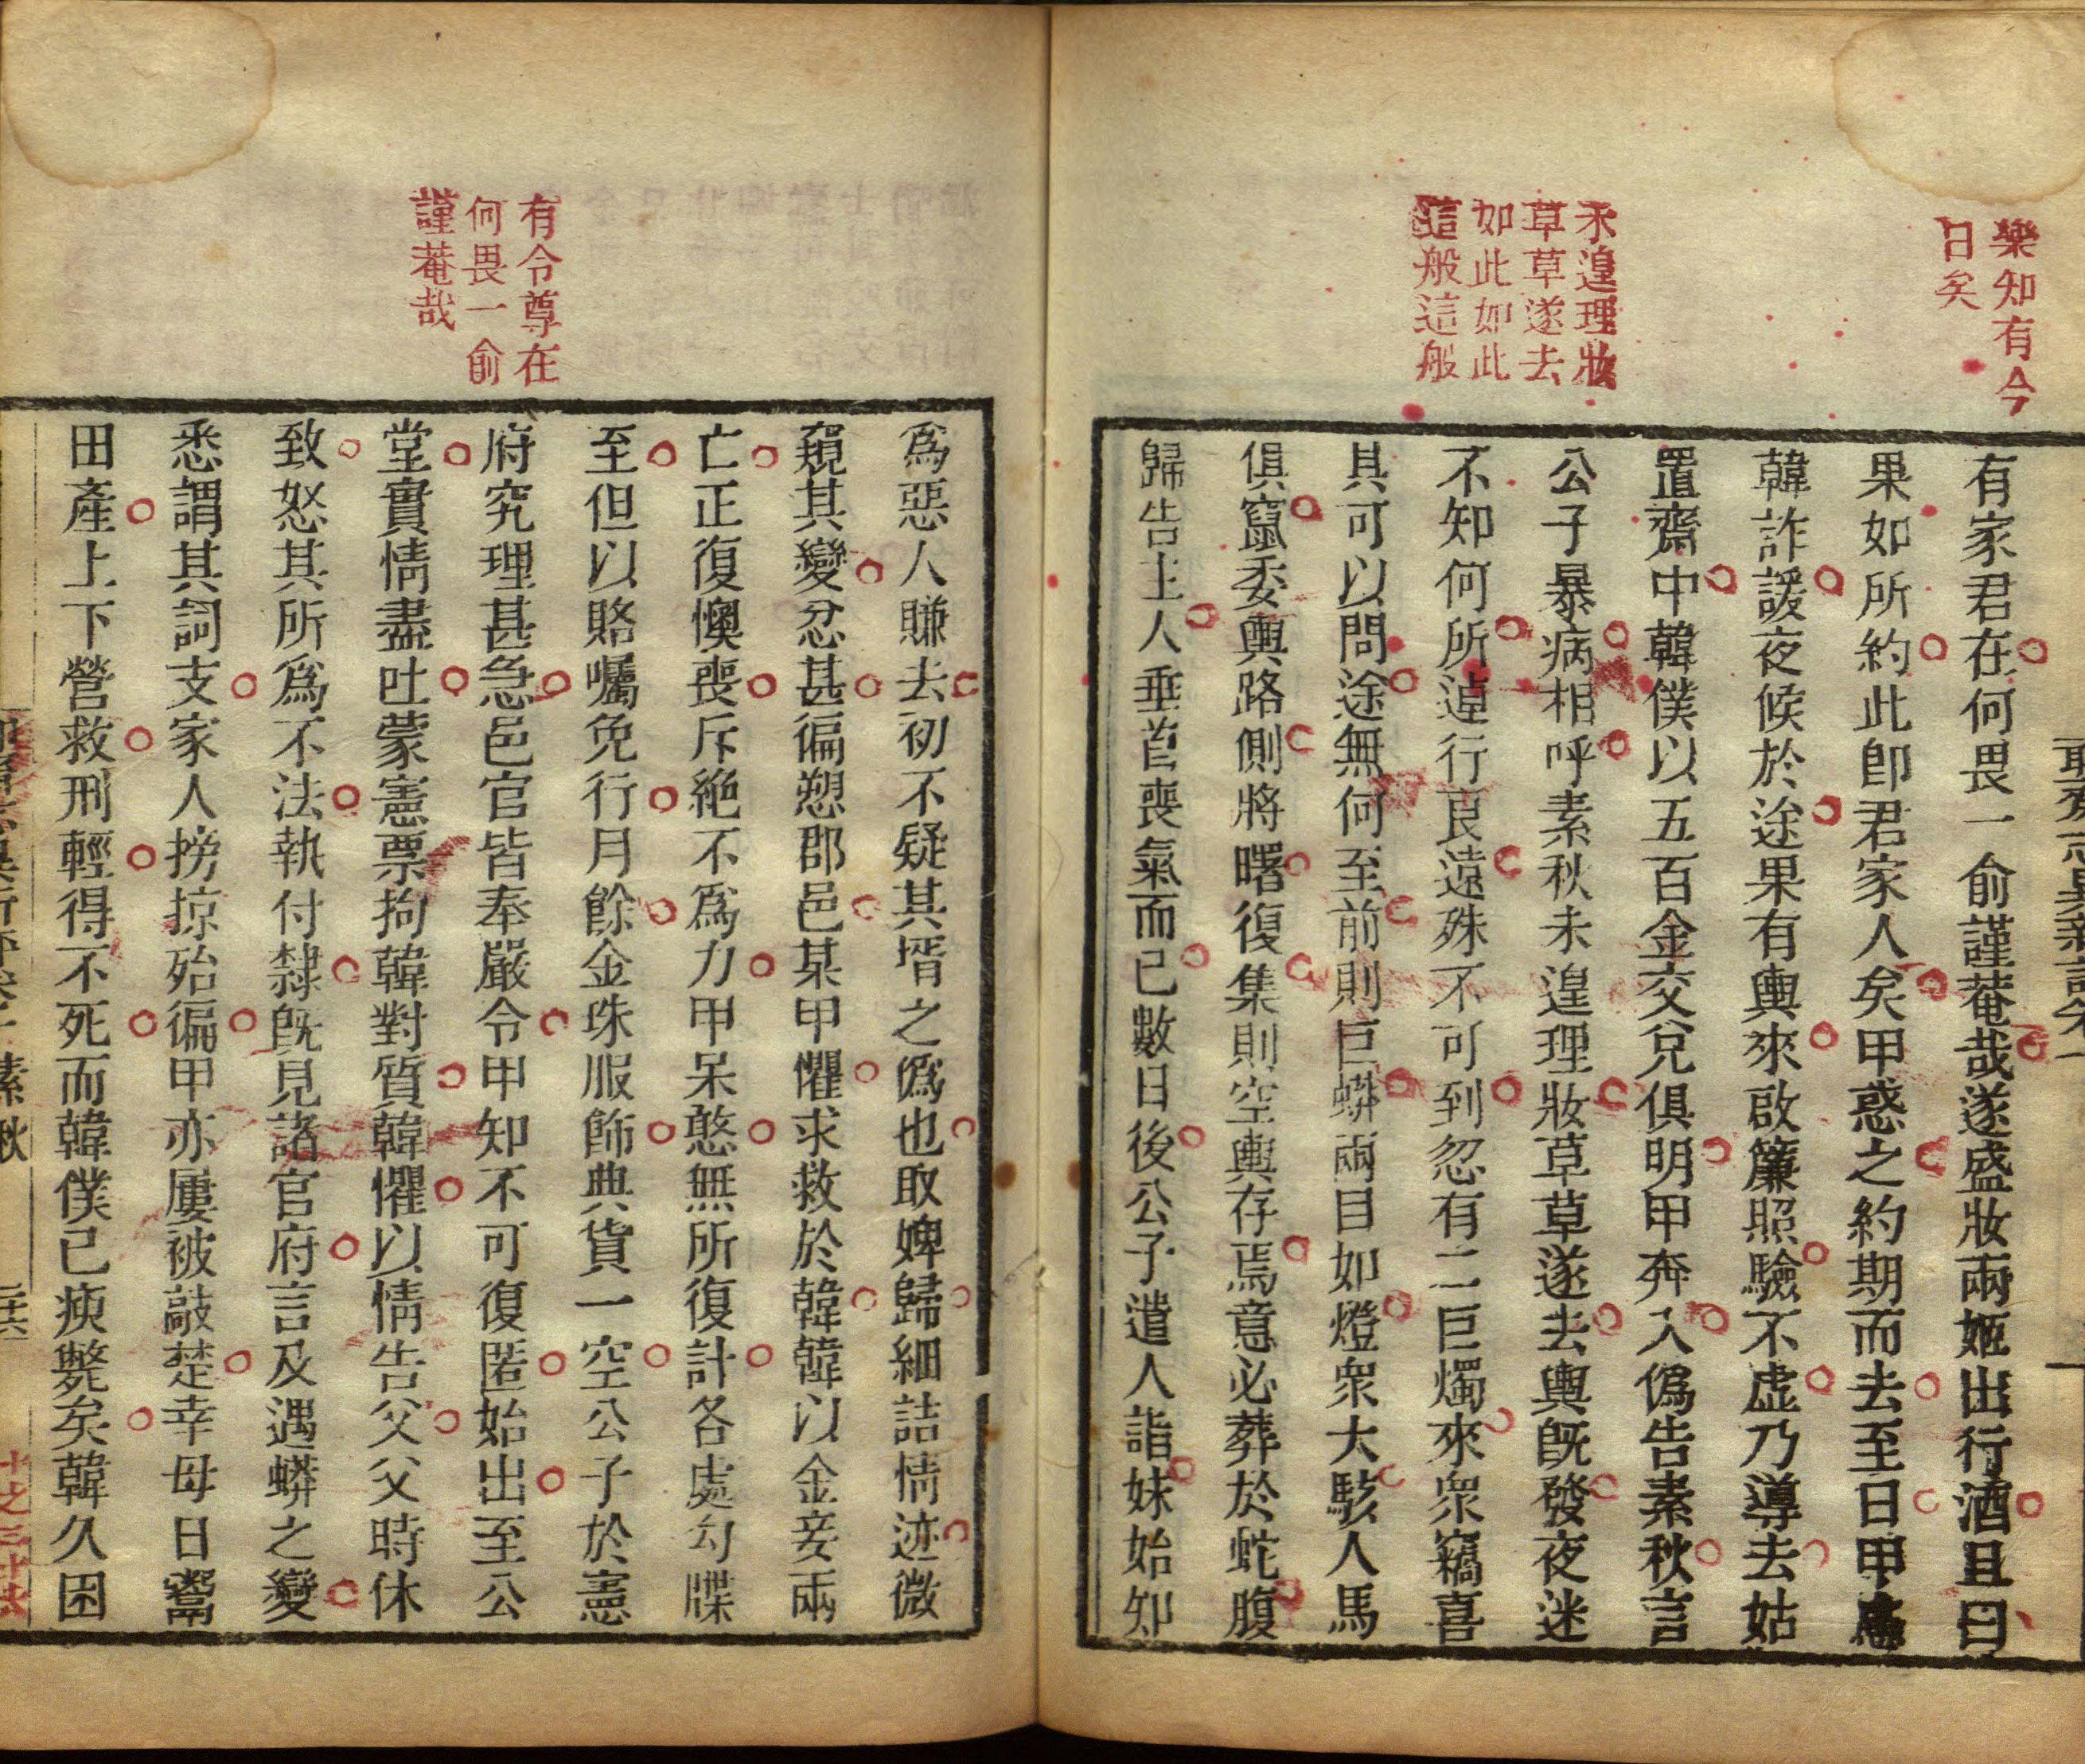 樂知有今
日矣
未遑理妝
草草遂去
如此如此
這般這般
有家君在何畏一俞謹菴哉遂盛妝兩姬出行酒且曰
果如所約此卽君家人矣甲惑之約期而去至日甲慮
韓詐諼夜候於途果有輿來啟簾照驗不虛乃導去姑
置齋中韓僕以五百金交兌俱明甲奔入僞告素秋言
公子暴病相呼素秋未遑理妝草草遂去輿旣發夜迷
不知何所逴行良遠殊不可到忽有二巨燭來眾竊喜
其可以問途無何至前則巨蟒兩目如燈眾大駭人馬
俱竄委輿路側將曙復集則空輿存焉意必葬於蛇腹
歸告主人垂首喪氣而已數日後公子遣人詣妹始知
有令尊在
何畏一俞
謹菴哉
爲惡人賺去初不疑其壻之僞也取婢歸細詰情迹微
窺其變忿甚徧愬郡邑某甲懼求救於韓韓以金妾兩
亡正復懊喪斥絕不爲力甲呆憨無所復計各處勾牒
至但以賂囑免行月餘金珠服飾典貨一空公子於憲
府究理甚急邑官皆奉嚴令甲知不可復匿始出至公
堂實情盡吐蒙憲票拘韓對質韓懼以情告父父時休
致怒其所爲不法執付隸旣見諸官府言及遇蟒之變
悉謂其詞支家人搒掠殆徧甲亦屢被敲楚幸母日鬻
田產上下營救刑輕得不死而韓僕已瘐斃矣韓久困
素秋
二十六